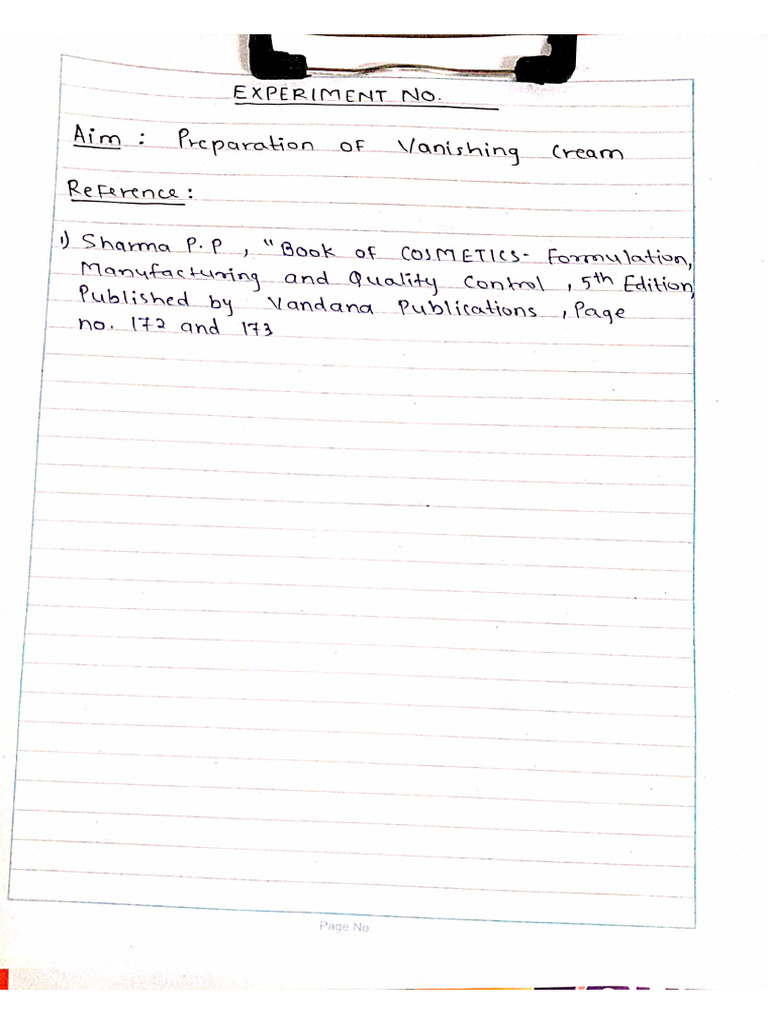 EXPERIMENT NO.
Aim : Preparation of Vanishing Cream
Reference :
1) Sharma P.P , "Book of COSMETICS- Formulation,
Manufacturing and Quality Control , 5th Edition,
Published by Vandana Publications , Page
no. 172 and 173
Page No